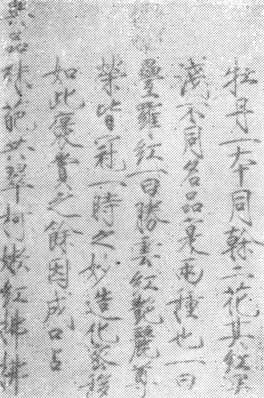 牡丹一夲同榦二花其紅深
淺不同名品寔兩種也一曰
疊羅紅一曰勝雲紅艷麗尊
榮皆冠一時之妙造化密移
如此褒賞之餘因成口占
異品殊葩共翠柯嫩紅拂拂